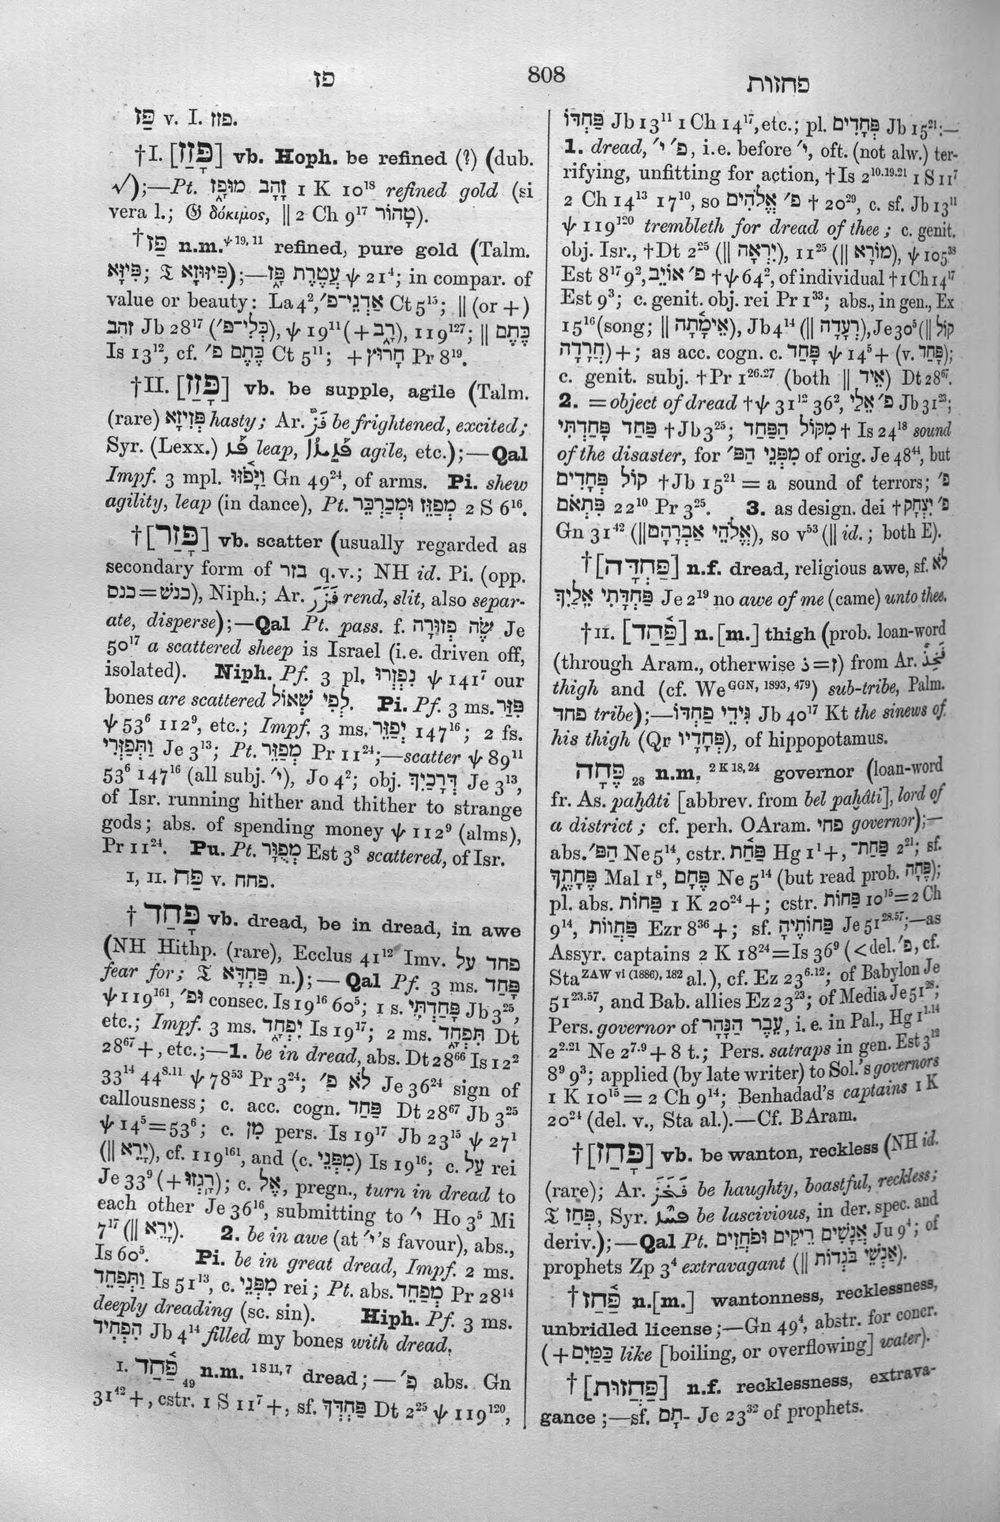 פז
808
פחזות
פַּז v. I. פזז.
†I. [פָּזַז] vb. Hoph. be refined (?) (dub.
√);—Pt. זָהָב מוּפָז 1 K 10¹⁸ refined gold (si
vera l.; 𝔊 δόκιμος, ‖ 2 Ch 9¹⁷ טָהוֹר).
†פַּז n.m. ψ 19, 11 refined, pure gold (Talm.
value or beauty: La 4², אַדְנֵי־פ׳ Ct 5¹⁵; ‖ (or +)
זהב Jb 28¹⁷ (כְּלִי־פ׳), ψ 19¹¹ (+ רָב), 119¹²⁷; ‖ כֶּתֶם
Is 13¹², cf. כֶּתֶם פ׳ Ct 5¹¹; + חָרוּץ Pr 8¹⁹.
†II. [פָּזַז] vb. be supple, agile (Talm.
(rare) hasty; Ar. be frightened, excited;
Syr. (Lexx.) leap, agile, etc.);—Qal
Impf. 3 mpl. וַיָּפֹזּוּ Gn 49²⁴, of arms. Pi. shew
agility, leap (in dance), Pt. מְפַזֵּז וּמְכַרְכֵּר 2 S 6¹⁶.
†[פָּזַר] vb. scatter (usually regarded as
secondary form of בזר q.v.; NH id. Pi. (opp.
כנס=כנשׁ), Niph.; Ar. rend, slit, also separ-
ate, disperse);—Qal Pt. pass. f. שֶׂה פְזוּרָה Je
50¹⁷ a scattered sheep is Israel (i.e. driven off,
isolated). Niph. Pf. 3 pl. נִפְזְרוּ ψ 141⁷ our
bones are scattered לְפִי שְׁאוֹל. Pi. Pf. 3 ms. פִּזַּר
ψ 53⁶ 112⁹, etc.; Impf. 3 ms. יְפַזֵּר 147¹⁶; 2 fs.
וַתְּפַזְּרִי Je 3¹³; Pt. מְפַזֵּר Pr 11²⁴;—scatter ψ 89¹¹
53⁶ 147¹⁶ (all subj. י׳), Jo 4²; obj. דְּרָכַיִךְ Je 3¹³,
of Isr. running hither and thither to strange
gods; abs. of spending money ψ 112⁹ (alms),
Pr 11²⁴. Pu. Pt. מְפֻזָּר Est 3⁸ scattered, of Isr.
I, II. פַּח v. פחח.
†פָּחַד vb. dread, be in dread, in awe
(NH Hithp. (rare), Ecclus 41¹² Imv. פחד על
fear for; 𝔗 n.);—Qal Pf. 3 ms. פָּחַד
ψ 119¹⁶¹, וּפ׳ consec. Is 19¹⁶ 60⁵; 1 s. פָּחַדְתִּי Jb 3²⁵,
etc.; Impf. 3 ms. יִפְחָד Is 19¹⁷; 2 ms. תִּפְחָד Dt
28⁶⁷+, etc.;—1. be in dread, abs. Dt 28⁶⁶ Is 12²
33¹⁴ 44⁸·¹¹ ψ 78⁵³ Pr 3²⁴; לֹא פ׳ Je 36²⁴ sign of
callousness; c. acc. cogn. פַּחַד Dt 28⁶⁷ Jb 3²⁵
ψ 14⁵=53⁶; c. מִן pers. Is 19¹⁷ Jb 23¹⁵ ψ 27¹
(‖ יָרֵא), cf. 119¹⁶¹, and (c. מִפְּנֵי) Is 19¹⁶; c. עַל rei
Je 33⁹ (+ רָגְזוּ); c. אֶל, pregn., turn in dread to
each other Je 36¹⁶, submitting to י׳ Ho 3⁵ Mi
7¹⁷ (‖ יָרֵא). 2. be in awe (at י׳'s favour), abs.,
Is 60⁵. Pi. be in great dread, Impf. 2 ms.
וַתְּפַחֵד Is 51¹³, c. מִפְּנֵי rei; Pt. abs. מְפַחֵד Pr 28¹⁴
deeply dreading (sc. sin). Hiph. Pf. 3 ms.
הִפְחִיד Jb 4¹⁴ filled my bones with dread.
I. פַּחַד 49 n.m. 1 S 11, 7 dread;—פ׳ abs. Gn
31⁴²+, cstr. 1 S 11⁷+, sf. פַּחְדְּךָ Dt 2²⁵ ψ 119¹²⁰,
פַּחְדּוֹ Jb 13¹¹ 1 Ch 14¹⁷, etc.; pl. פְּחָדִים Jb 15²¹;—
1. dread, פ׳ י׳, i.e. before י׳, oft. (not alw.) ter-
rifying, unfitting for action, †Is 2¹⁰·¹⁹·²¹ 1 S 11⁷
2 Ch 14¹³ 17¹⁰, so פ׳ אֱלֹהִים † 20²⁹, c. sf. Jb 13¹¹
ψ 119¹²⁰ trembleth for dread of thee; c. genit.
obj. Isr., †Dt 2²⁵ (‖ יִרְאָה), 11²⁵ (‖ מוֹרָא), ψ 105³⁸
Est 8¹⁷ 9², פ׳ אוֹיֵב †ψ 64², of individual †1 Ch 14¹⁷
Est 9³; c. genit. obj. rei Pr 1³³; abs., in gen., Ex
15¹⁶ (song; ‖ אֵימָתָה), Jb 4¹⁴ (‖ רְעָדָה), Je 30⁵ (‖ קוֹל
חֲרָדָה)+; as acc. cogn. c. פָּחַד ψ 14⁵+ (v. פָּחַד);
c. genit. subj. †Pr 1²⁶·²⁷ (both ‖ אֵיד) Dt 28⁶⁷.
2. = object of dread †ψ 31¹² 36², פ׳ אֵל Jb 31²³;
פַּחַד פָּחַדְתִּי †Jb 3²⁵; מִקּוֹל הַפַּחַד † Is 24¹⁸ sound
of the disaster, for מִפְּנֵי הַפּ׳ of orig. Je 48⁴⁴, but
קוֹל פְּחָדִים †Jb 15²¹ = a sound of terrors; פ׳
פִּתְאֹם 22¹⁰ Pr 3²⁵. 3. as design. dei †פ׳ יִצְחָק
Gn 31⁴² (‖ אֱלֹהֵי אַבְרָהָם), so v⁵³ (‖ id.; both E).
†[פַּחְדָּה] n.f. dread, religious awe, sf. לֹא
פַחְדָּתִי אֵלַיִךְ Je 2¹⁹ no awe of me (came) unto thee.
†II. [פַּחַד] n.[m.] thigh (prob. loan-word
(through Aram., otherwise ذ=ז) from Ar.
thigh and (cf. We GGN, 1893, 479) sub-tribe, Palm.
פחד tribe);—גִּידֵי פַחֲדוֹ Jb 40¹⁷ Kt the sinews of
his thigh (Qr פַחֲדָיו), of hippopotamus.
פֶּחָה 28 n.m. 2 K 18, 24 governor (loan-word
fr. As. paḫâti [abbrev. from bel paḫâti], lord of
a district; cf. perh. OAram. פחי governor);—
abs. הַפּ׳ Ne 5¹⁴, cstr. פַּחַת Hg 1¹+, פַּחַת־ 2²¹; sf.
פֶּחָתֶךָ Mal 1⁸, פֶּחָם Ne 5¹⁴ (but read prob. פֶּחָה);
pl. abs. פַּחוֹת 1 K 20²⁴+; cstr. פַּחוֹת 10¹⁵=2 Ch
9¹⁴, פַּחֲווֹת Ezr 8³⁶+; sf. פַּחוֹתֶיהָ Je 51²⁸·⁵⁷;—as
Assyr. captains 2 K 18²⁴=Is 36⁹ (<del. פ׳, cf.
Sta ZAW vi (1886), 182 al.), cf. Ez 23⁶·¹²; of Babylon Je
51²³·⁵⁷, and Bab. allies Ez 23²³; of Media Je 51²⁸;
Pers. governor of עֵבֶר הַנָּהָר, i.e. in Pal., Hg 1¹·¹⁴
2²·²¹ Ne 2⁷·⁹ + 8 t.; Pers. satraps in gen. Est 3¹²
8⁹ 9³; applied (by late writer) to Sol.'s governors
1 K 10¹⁵ = 2 Ch 9¹⁴; Benhadad's captains 1 K
20²⁴ (del. v., Sta al.).—Cf. BAram.
†[פָּחַז] vb. be wanton, reckless (NH id.
(rare); Ar. be haughty, boastful, reckless;
𝔗 פְּחַז, Syr. be lascivious, in der. spec. and
deriv.);—Qal Pt. אֲנָשִׁים רֵיקִים וּפֹחֲזִים Ju 9⁴; of
prophets Zp 3⁴ extravagant (‖ אַנְשֵׁי בֹּגְדוֹת).
†פַּחַז n.[m.] wantonness, recklessness,
unbridled license;—Gn 49⁴, abstr. for concr.
(+ כַּמַּיִם like [boiling, or overflowing] water).
†[פַּחֲזוּת] n.f. recklessness, extrava-
gance;—sf. תָם- Je 23³² of prophets.